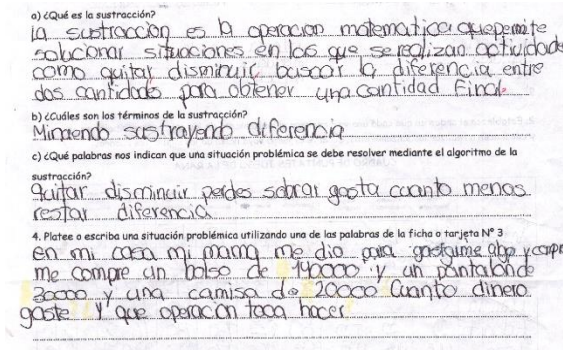 a) ¿Qué es la sustracción?
la sustracción es la operacion matematica que permite
solucionar situaciones en las que se realizan actividade
como quitar disminuir buscar la diferencia entre
dos cantidades para obtener una cantidad final.
b) ¿Cuáles son los términos de la sustracción?
Minuendo sustrayendo diferencia
c) ¿Qué palabras nos indican que una situación problémica se debe resolver mediante el algoritmo de la
sustracción?
quitar disminuir perdes sobrar gasta cuanto menos
restar diferencia
4. Platee o escriba una situación problémica utilizando una de las palabras de la ficha o tarjeta N° 3
en mi casa mi mama me dio para gastarme algo y compr
me compre un bolso de 140000 y un pantalon de
30000 y una camisa de 20000 Cuanto dinero
gaste y que operacion toca hacer